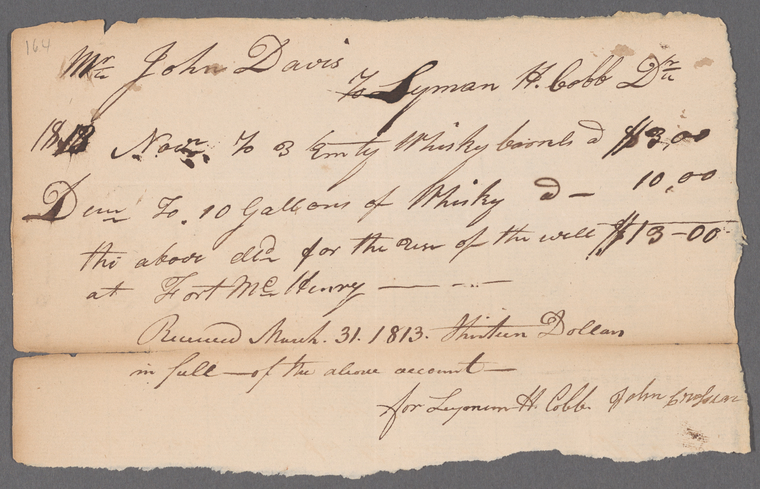 164
Mr John Davis
To Lyman H. Cobb Dr
1813 Novr To 3 Emty Whisky barrels d $3,00
Decm To. 10 Gallons of Whisky d – 10,00
the above deld for the use of the well $13–00
at Fort Mc Henry — - - —
Received March. 31. 1813. Thirteen Dollars
in full – of the above account –
for Lyman H. Cobb John